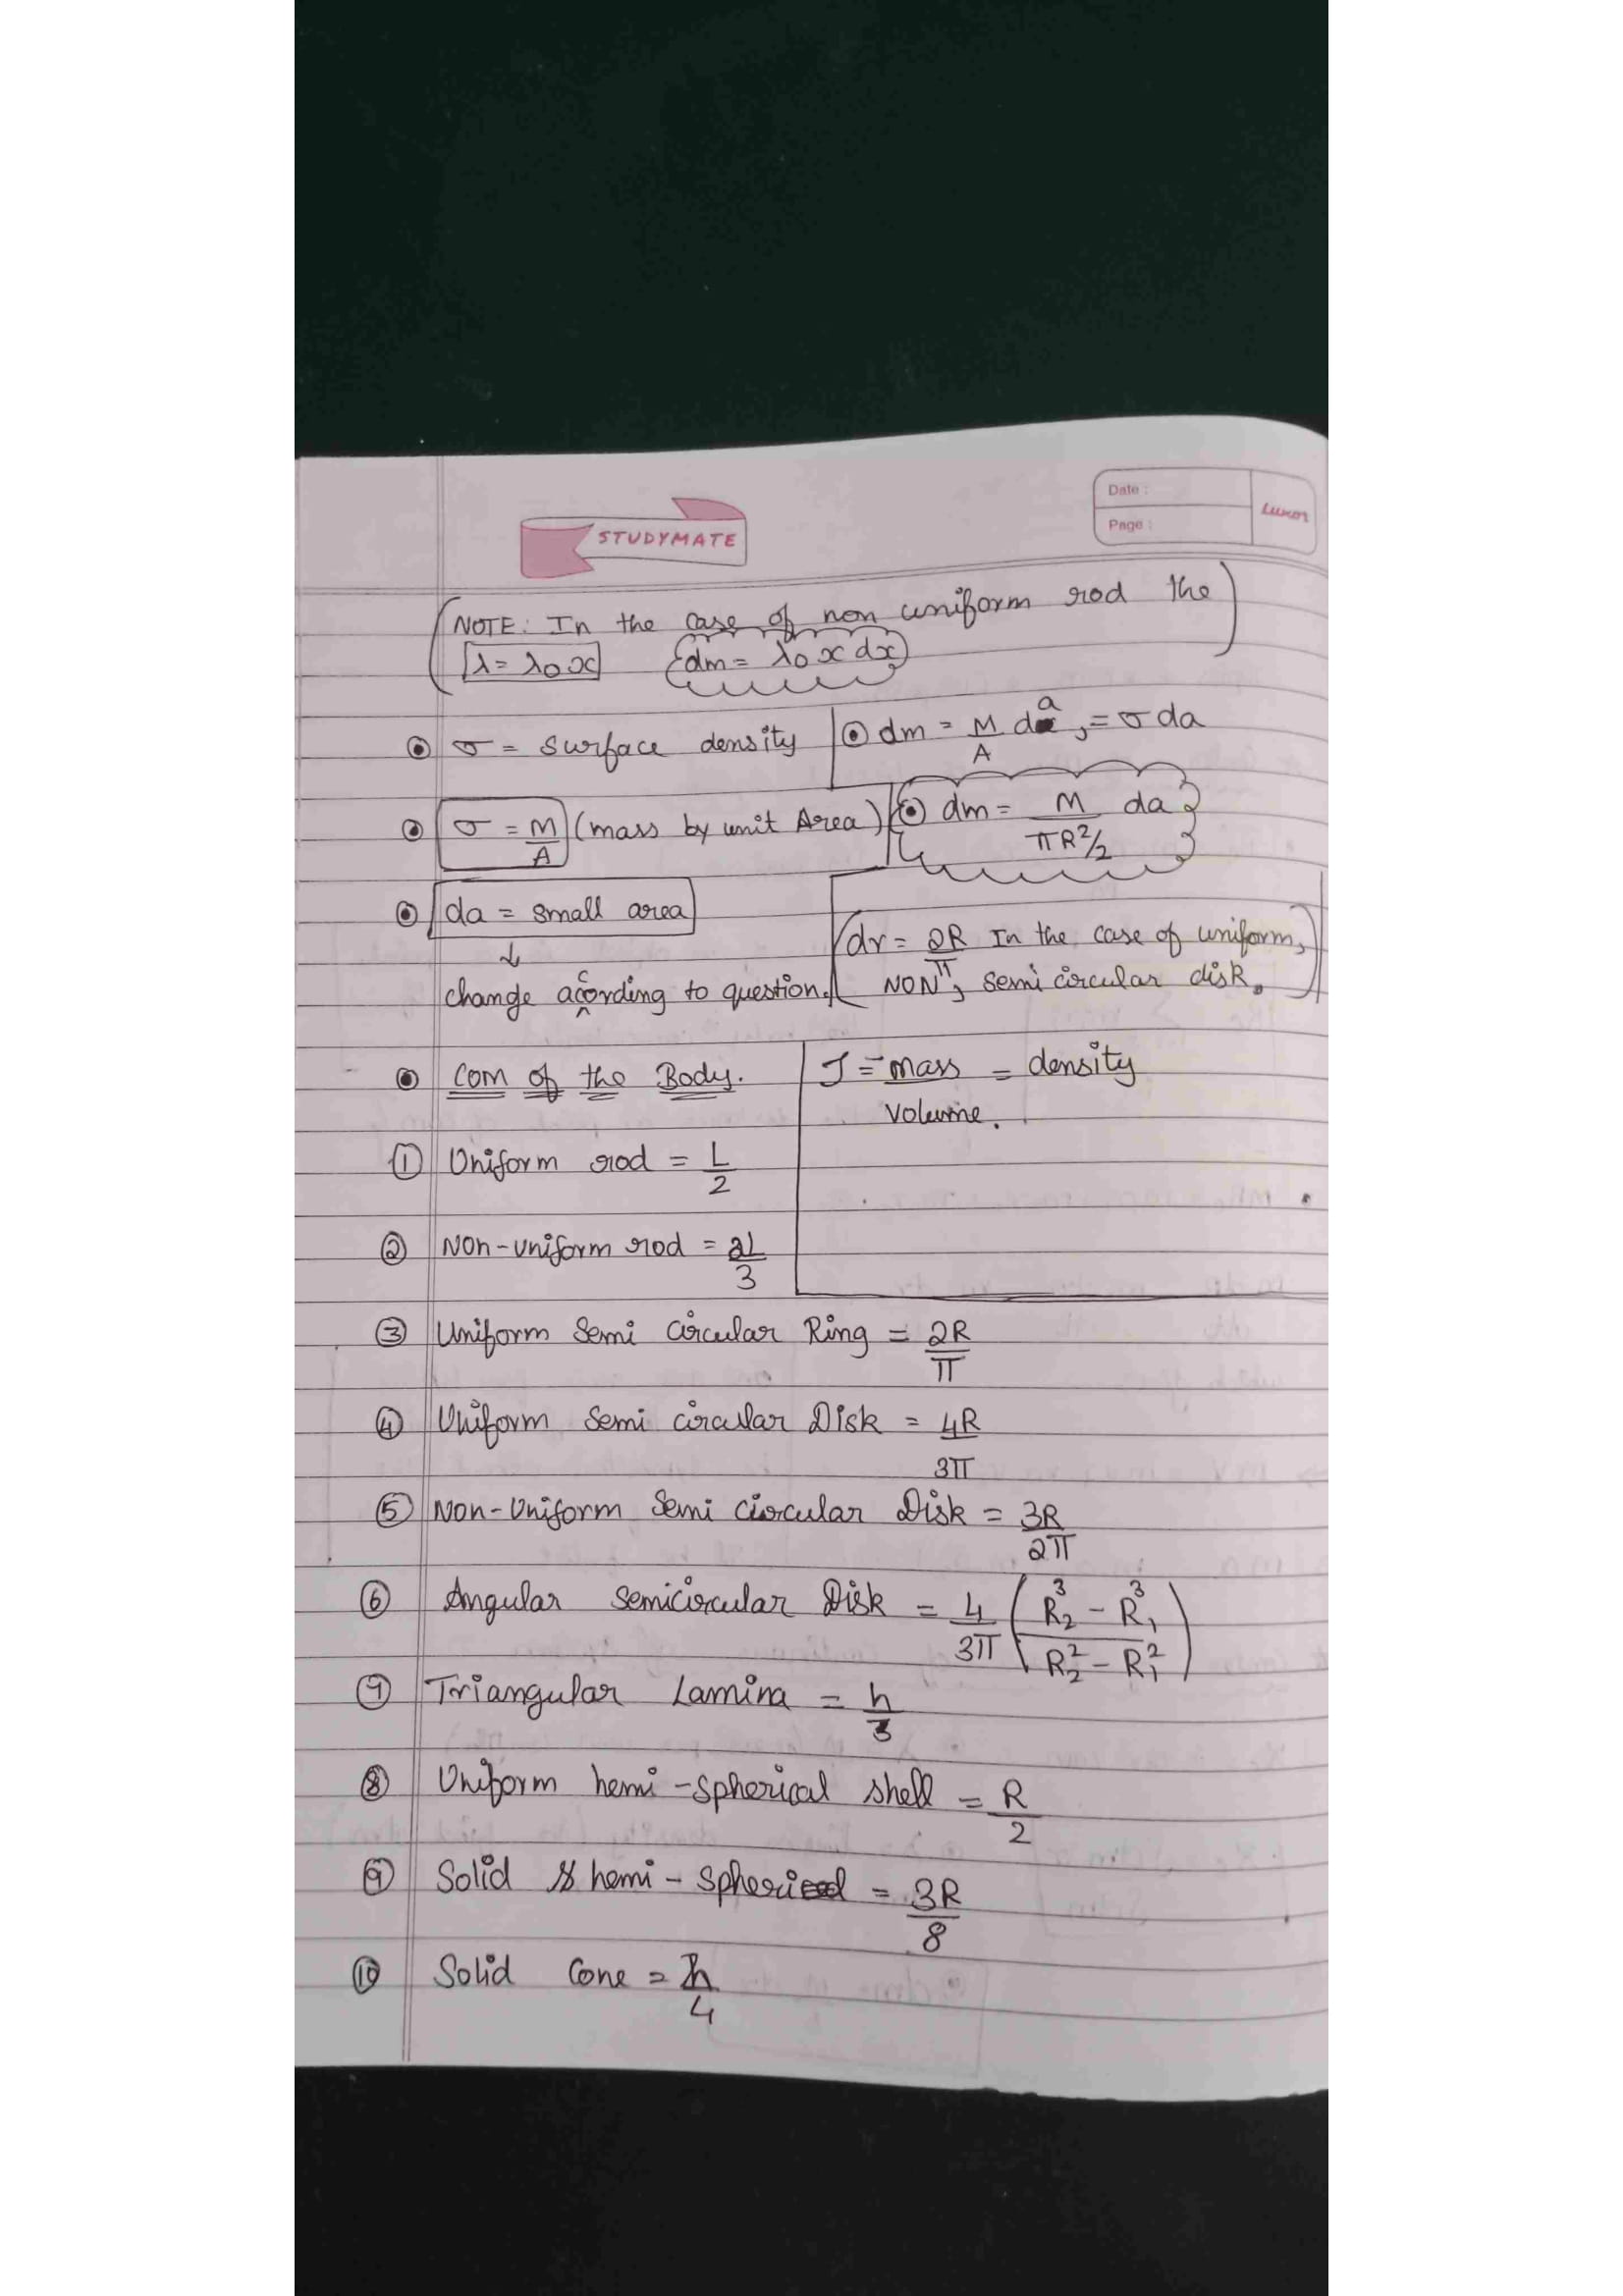 STUDYMATE
Date :
Page :
Luxor
(NOTE: In the case of non uniform rod the
λ = λ₀x dm = λ₀ x dx)
σ = surface density
dm = M/A da, = σ da
σ = M/A (mass by unit Area)
dm = M/(πR²/2) da
da = small area
↓
change acording to question.
c
dr = 2R/π In the case of uniform,
NON", semi circular disk.
COM of the Body.
J = mass/volume. = density
① Uniform rod = L/2
② NON-uniform rod = 2L/3
③ Uniform Semi circular Ring = 2R/π
④ Uniform Semi circular Disk = 4R/3π
⑤ NON-Uniform Semi circular Disk = 3R/2π
⑥ Angular Semicircular Disk = 4/3π (R₂³ - R₁³ / R₂² - R₁²)
⑦ Triangular Lamina = h/3
⑧ Uniform hemi-spherical shell = R/2
⑨ Solid hemi-spherical = 3R/8
⑩ Solid Cone = h/4